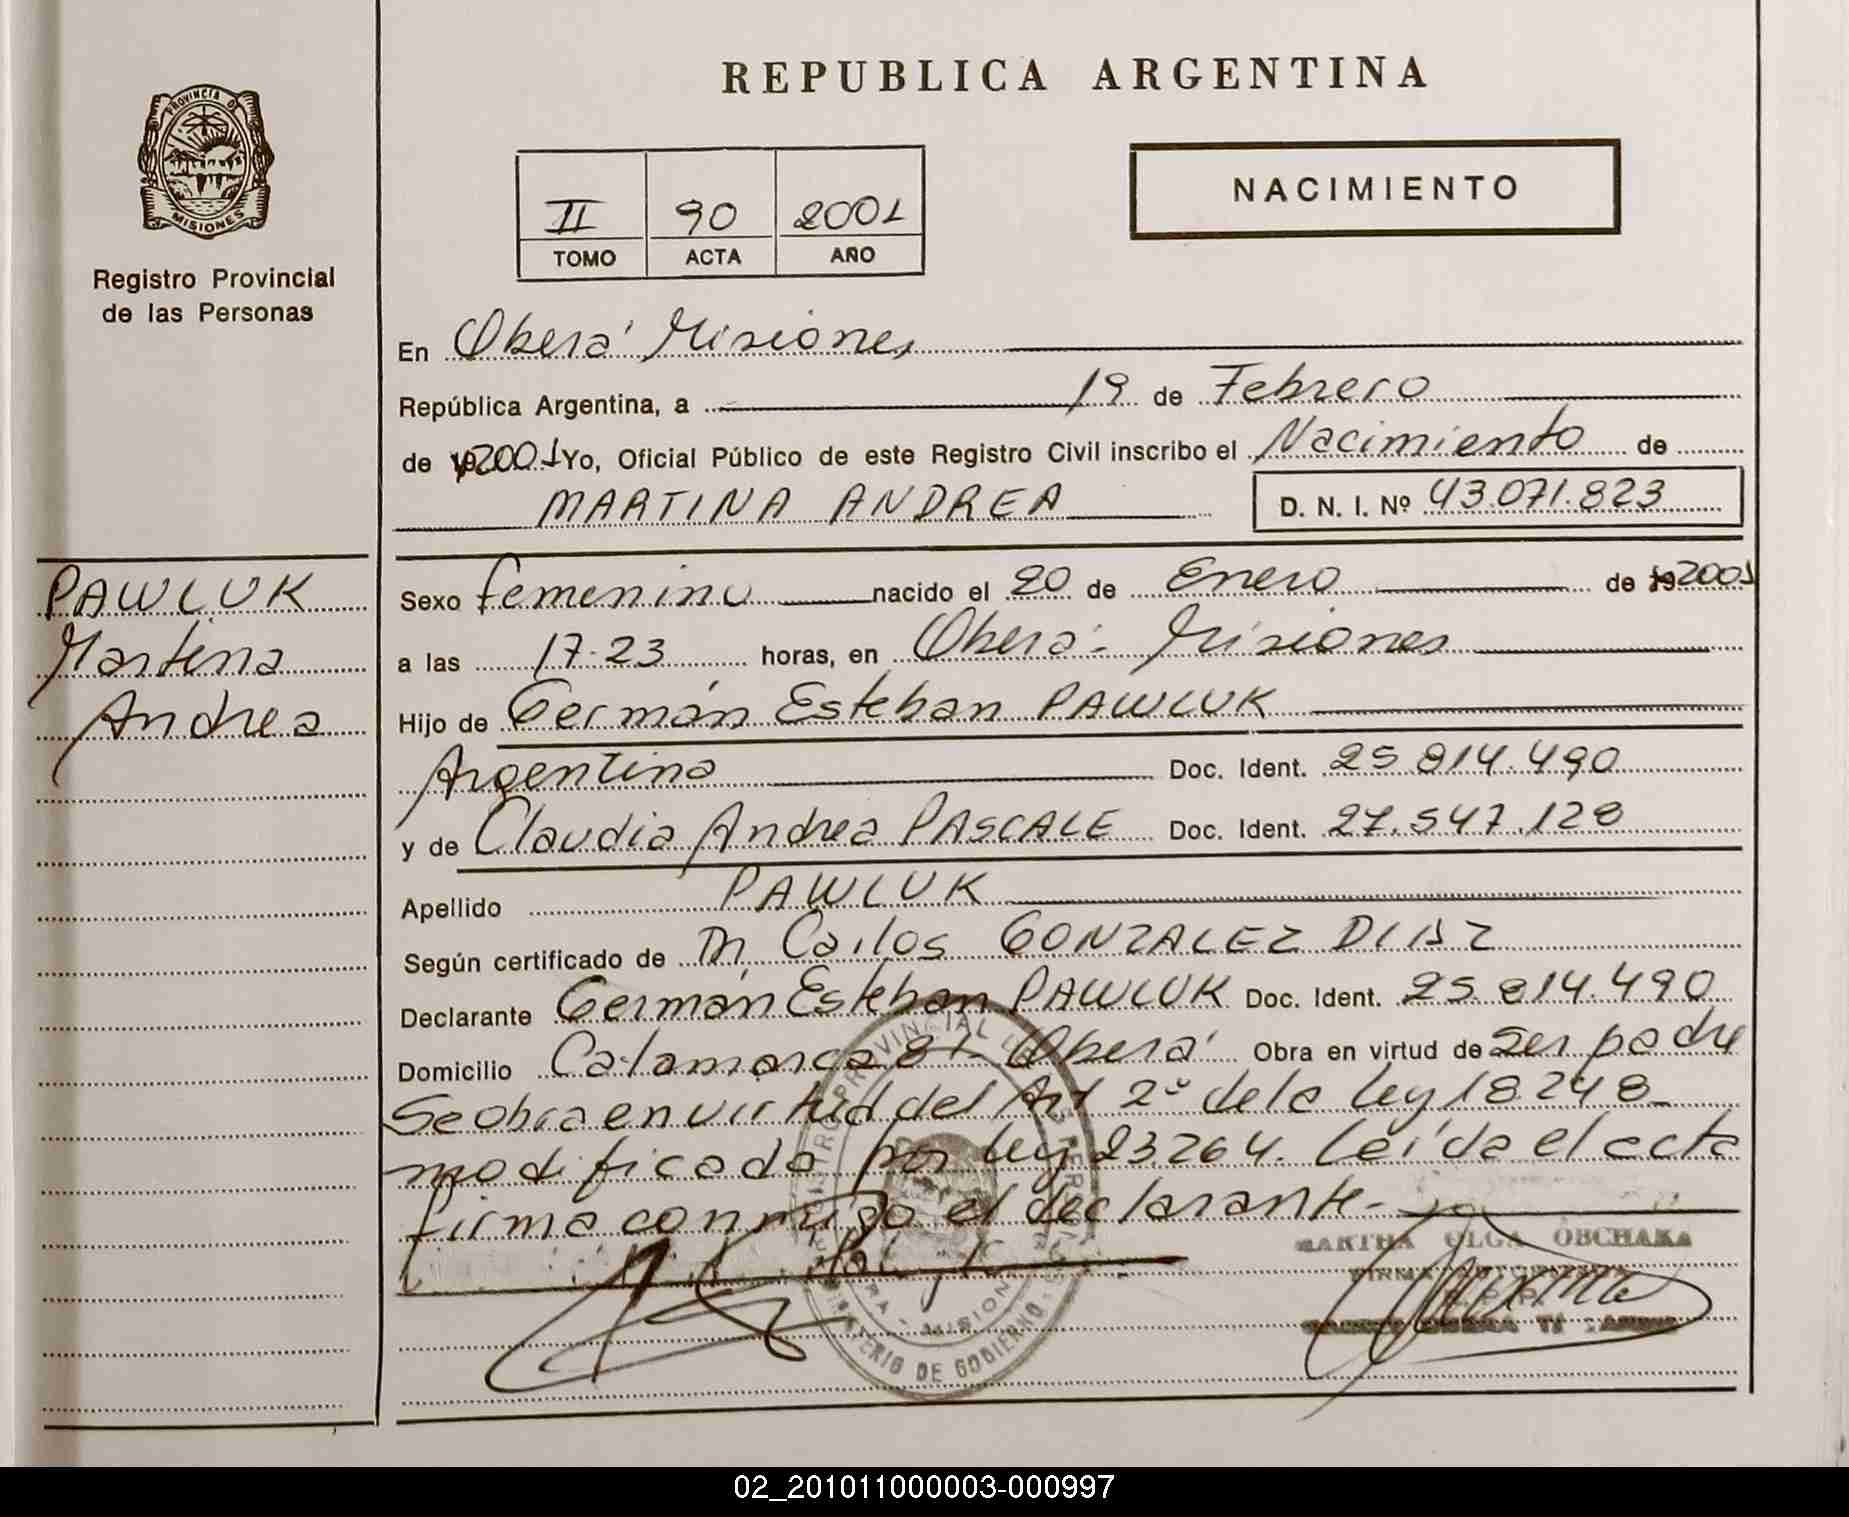 REPUBLICA ARGENTINA
PROVINCIA DE
MISIONES
Registro Provincial
de las Personas
II 90 2001
TOMO ACTA AÑO
NACIMIENTO
En Oberá Misiones
República Argentina, a 19 de Febrero
de 2001 Yo, Oficial Público de este Registro Civil inscribo el Nacimiento de
MARTINA ANDREA D. N. I. Nº 43.071.823
PAWLUK
Martina
Andrea
Sexo femenino nacido el 20 de Enero de 2001
a las 17.23 horas, en Oberá - Misiones
Hijo de Germán Esteban PAWLUK
Argentina Doc. Ident. 25.814.490
y de Claudia Andrea PASCALE Doc. Ident. 27.547.128
Apellido PAWLUK
Según certificado de Carlos GONZALEZ DIAZ
Declarante Germán Esteban PAWLUK Doc. Ident. 25.814.490
Domicilio Catamarca 81 - Oberá Obra en virtud de ser padre
Se obra en virtud del Art 2º de la Ley 18.248
modificada por Ley 23.264. Leída el acta
firma conmigo el declarante.-
MARTHA OLGA OBCHAKA
MINISTERIO DE GOBIERNO
MISIONES
02_201011000003-000997